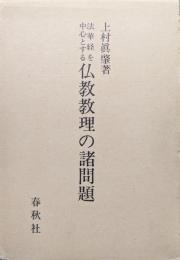 上村眞肇著
法華経を
中心とする
仏教教理の諸問題
春秋社